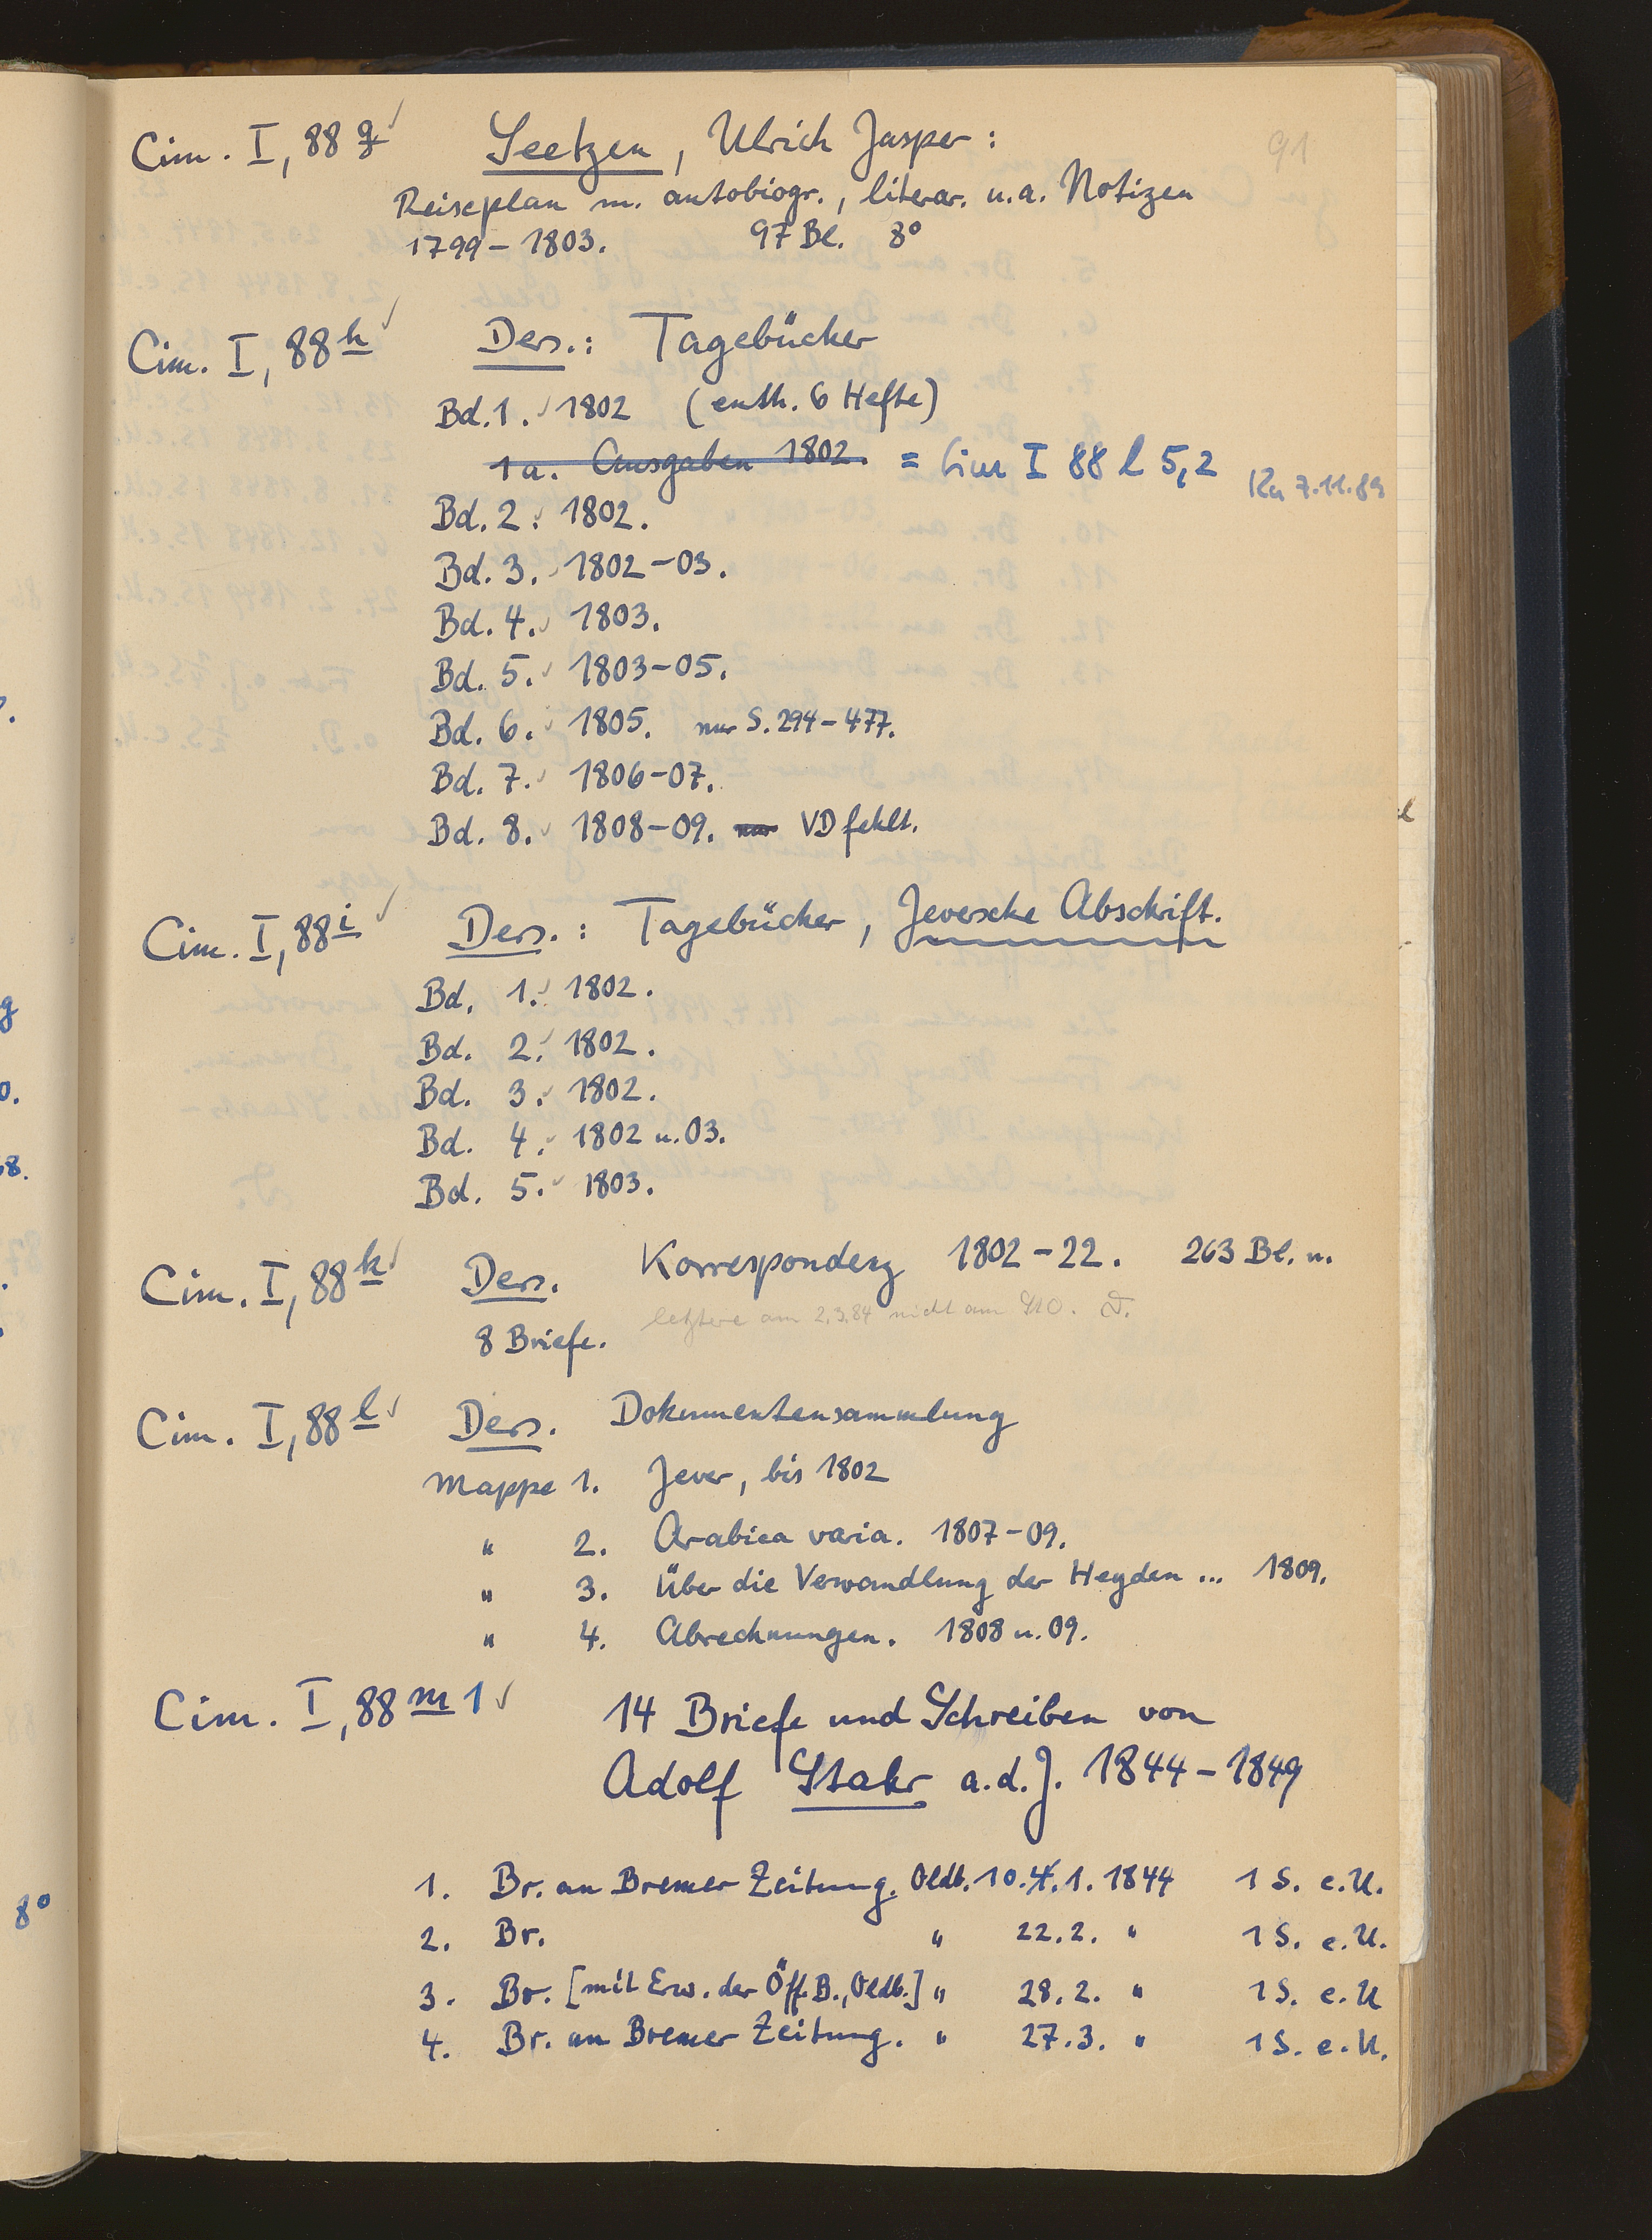 91
Cim. I, 88 g ✓ Seetzen, Ulrich Jasper:
Reiseplan m. autobiogr., literar. u.a. Notizen
1799-1803. 97 Bl. 8°
Cim. I, 88 h ✓ Ders.: Tagebücher
Bd. 1. ✓ 1802 (enth. 6 Hefte)
1a. Ausgaben 1802. = Cim I 88 l 5,2 7.11.89
Bd. 2. ✓ 1802.
Bd. 3. ✓ 1802-03.
Bd. 4. ✓ 1803.
Bd. 5. ✓ 1803-05.
Bd. 6. ✓ 1805. nur S. 294-477.
Bd. 7. ✓ 1806-07.
Bd. 8. ✓ 1808-09. nur VD fehlt.
Cim. I, 88 i ✓ Ders.: Tagebücher, Jeversche Abschrift.
Bd. 1. ✓ 1802.
Bd. 2. ✓ 1802.
Bd. 3. ✓ 1802.
Bd. 4. ✓ 1802 u. 03.
Bd. 5. ✓ 1803.
Cim. I, 88 k ✓ Ders. Korrespondenz 1802-22. 263 Bl. u.
8 Briefe. letztere am 2.3.84 nicht am StO. F.
Cim. I, 88 l ✓ Ders. Dokumentensammlung
Mappe 1. Jever, bis 1802
" 2. Arabica varia. 1807-09.
" 3. Über die Verwandlung der Heyden ... 1809.
" 4. Abrechnungen. 1808 u. 09.
Cim. I, 88 m 1 ✓ 14 Briefe und Schreiben von
Adolf Stahr a.d.J. 1844-1849
1. Br. an Bremer Zeitung. Oldb. 10.4.1. 1844 1 S. e.U.
2. Br. " 22.2. " 1 S. e.U.
3. Br. [mit Erw. der Öff. B., Oldb.] " 28.2. " 1 S. e.U
4. Br. an Bremer Zeitung. " 27.3. " 1 S. e.U.
8°